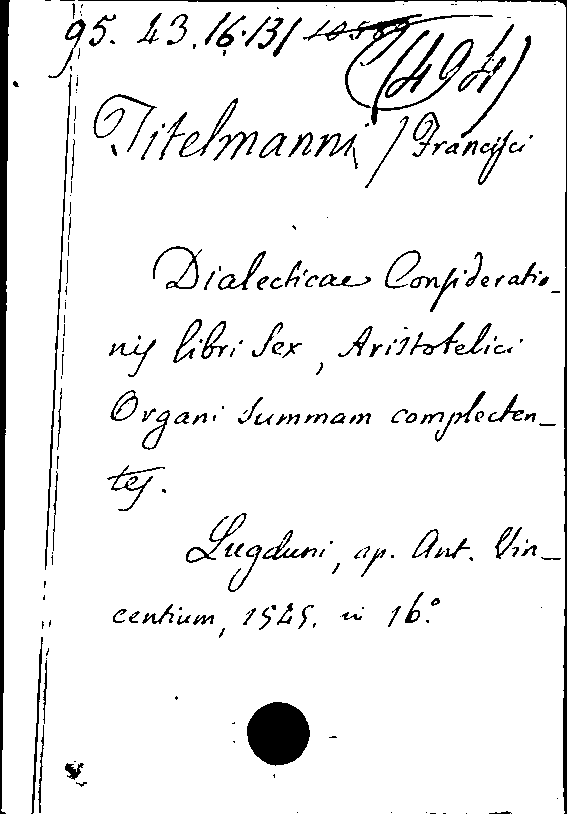 95. 43. 16. 131
(494)
Titelmanni / Francisci
Dialecticae Consideratio_
nis libri Sex, Aristotelici
Organi Summam complecten_
tes.
Lugduni, ap. Ant. Vin_
centium, 1545. in 16.°